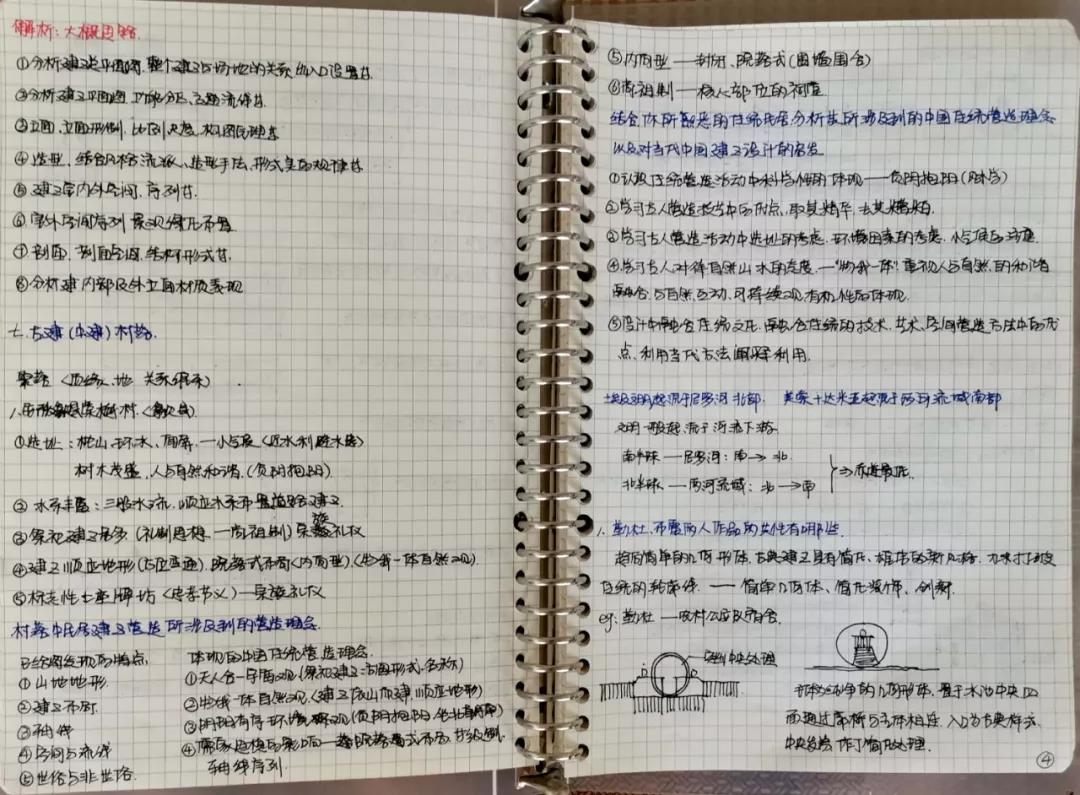 解析：大概思路.
①分析建筑总平面图，整个建筑与场地的关系，出入口设置等.
②分析建筑平面图，功能分区，交通流线等.
③立面，立面形制，比例尺度，构图原理等
④造型，结合风格流派、造型手法、形式美的规律等
⑤建筑室内外空间，序列等.
⑥室外空间序列 景观绿化布置
⑦剖面，剖面空间，结构形式等.
⑧分析建筑内部及外立面材质表现
七.古建（中建）村落.
聚落（血缘、地 关系维系）.
村
①选址：枕山、环水、面屏，一小气候（近水利避水患）
树木茂盛，人与自然和谐.（负阴抱阳）
②水系丰盛：三股水流，顺应水系布置道路建筑.
③祭祀建筑居多（礼制思想，一尚祖制）宗族礼仪
④建筑顺应地形（因应变通），院落式布局（内向型），（物我一体自然观）.
⑤标志性七座牌坊（忠孝节义）—宗族礼仪
村落中民居建筑营造所涉及到的营造理念
已给图纸现的特点.
①山地地形.
②建筑布局.
③轴线
④空间与流线
⑤世俗与非世俗.
体现的中国传统营造理念.
①天人合一宇宙观（祭祀建筑：方圆形式，名称）
②物我一体自然观（建筑依山而建，顺应地形）
③阴阳有序环境观（负阴抱阳，坐北朝南）
④儒家思想的影响—院落式布局，等级制，
轴线序列.
⑤内向型—封闭、院落式（围墙围合）
⑥尚祖制—核心部位的祠堂
结合你所熟悉的传统民居分析其所涉及到的中国传统营造理念
以及对当代中国建筑设计的启发
①认识传统营造活动中科学性的体现——负阴抱阳（风水学）
②学习古人营造技艺中的优点，取其精华，去其糟粕.
③学习古人营造活动中选址的考虑，环境因素的考虑，小气候的注意.
④学习古人对待自然山水的态度，一“物我一体”重视人与自然的和谐
融合，与自然互动，可持续观，有机性的体现.
⑤设计中融合传统文化，融合传统的技术、艺术、空间营造方法中的优
点，利用当代方法阐释利用.
埃及文明起源于尼罗河北部. 美索不达米亚起源于两河流域南部
文明一般起源于河流下游.
南半球—尼罗河：南→北.
北半球—两河流域：北→南
1.勒杜、布雷两人作品的共性有哪些.
趋向简单的几何形体，古典建筑具有简化、粗壮的新风格，力求打破
传统的轮廓线 —— 简单几何体、简化装饰、创新.
eg：勒杜—农村公安队宿舍
球体中央处理
球体纯净的几何形体，置于水池中央，四
面通过吊桥与主体相连，入口为古典样式，
中央作了简化处理.
④